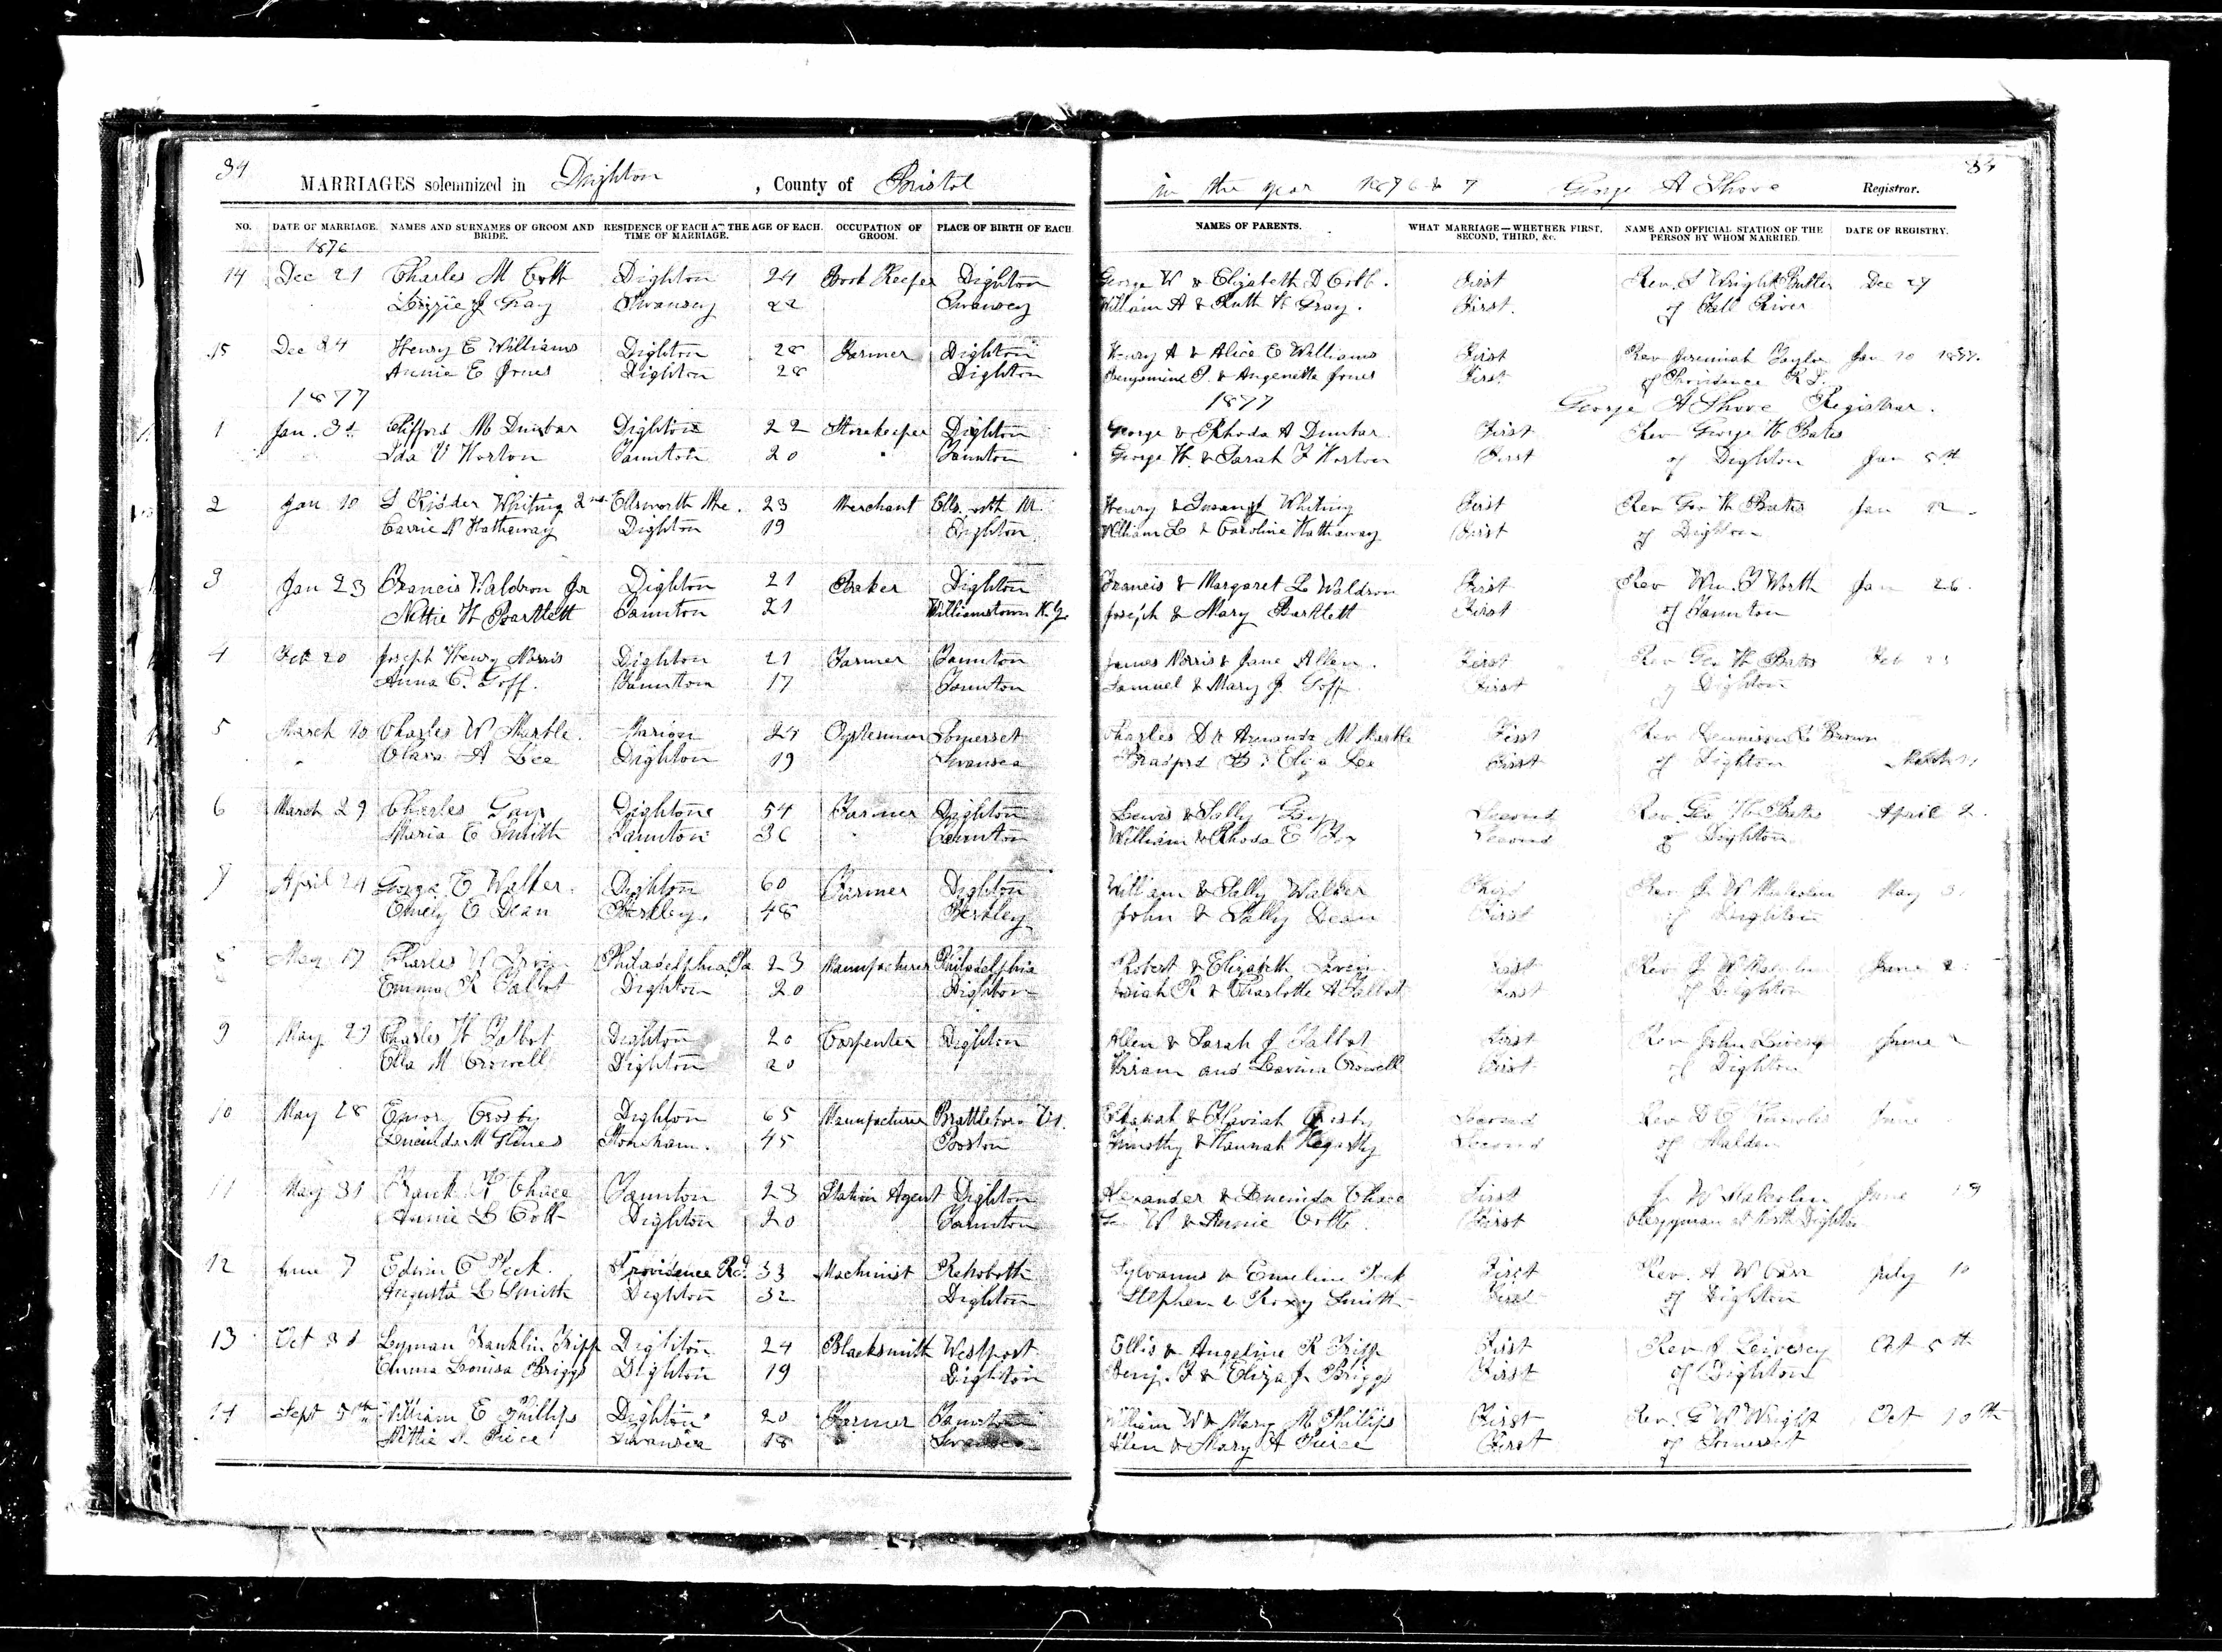 34
MARRIAGES solemnized in Dighton, County of Bristol in the year 1876 & 7 George A Shove Registrar.
NO. DATE OF MARRIAGE. NAMES AND SURNAMES OF GROOM AND BRIDE. RESIDENCE OF EACH AT THE TIME OF MARRIAGE. AGE OF EACH. OCCUPATION OF GROOM. PLACE OF BIRTH OF EACH. NAMES OF PARENTS. WHAT MARRIAGE—WHETHER FIRST, SECOND, THIRD, &c. NAME AND OFFICIAL STATION OF THE PERSON BY WHOM MARRIED. DATE OF REGISTRY.
1876
14 Dec 21 Charles M Cobb Dighton 24 Book Keeper Dighton George W & Elizabeth D Cobb. First Rev. S Wright Butler Dec 27
Lizzie J Gray Swansey 22 Swansey William A & Ruth H Gray. First. of Fall River
15 Dec 24 Henry E Williams Dighton 28 Farmer Dighton Henry A & Alice E Williams First Rev Jeremiah Taylor Jan 10 1877.
Annie E Jones Dighton 28 Dighton & Angenette Jones First of Providence R.I.
1877 1877 George A Shove Registrar.
1 Jan. 3d Clifford M Dunbar Dighton 22 Storekeeper Dighton George & Rhoda A Dunbar First Rev George H Bates
Ida V Horton Taunton 20 Taunton George H. & Sarah F Horton First of Dighton Jan 5th
2 Jan 10 S Kidder Whiting 2nd Ellsworth Me. 23 Merchant Ellsworth M. Henry & Susan Whiting First Rev Geo H Bates Jan 12
Carrie N Hathaway Dighton 19 Dighton William L & Caroline Hathaway First of Dighton
3 Jan 23 Francis Waldron Jr Dighton 21 Baker Dighton Francis & Margaret L Waldron First Rev Wm. T Worth Jan 26.
Nettie H Bartlett Taunton 21 Williamstown N.Y. Joseph & Mary Bartlett First of Taunton
4 Feb 20 Joseph Henry Norris Dighton 21 Farmer Taunton James Norris & Jane Allen. First Rev Geo H Bates Feb
Anna C. Goff. Taunton 17 Taunton Samuel & Mary J. Goff First of Dighton
5 March 10 Charles W Marble. Marion 24 Oysterman Somerset Charles D & Amanda M Marble First Rev Dennison Brown
Clara A Lee Dighton 19 Swansea & Eliza Lee First of Dighton March
6 March 29 Charles Gay Dighton 54 Farmer Dighton Lewis & Sally Gay Second Rev Geo H Bates April 2.
Maria E Smith Taunton 36 Taunton William & Rhoda E Second of Dighton
7 April 24 George E Walker. Dighton 60 Farmer Dighton William & Sally Walker Third Rev J W Malcolm May
Emely E Dean Berkley. 48 Berkley John & Sally Dean First of Dighton
8 May 17 Charles W Philadelphia Pa 23 Manufacturer Philadelphia Robert & Elizabeth First Rev J W Malcolm June 2
Emma R Talbot Dighton 20 Dighton Josiah R & Charlotte A Talbot First of Dighton
9 May 23 Charles H Talbot Dighton 20 Carpenter Dighton Allen & Sarah J Talbot First Rev John Livesy June
Ella M Crowell Dighton 20 Hiram and Lavinia Crowell First of Dighton
10 May 28 Crosby Dighton 65 Manufacturer Brattleboro Vt. Second Rev June
Stoneham. 45 Boston Timothy & Hannah Second of Malden
11 May 31 Frank Chace Taunton 23 Station Agent Dighton Alexander & Lucinda Chace First J. W Malcolm June 19
Annie L Cobb Dighton 20 Taunton W & Annie Cobb. First Clergyman at North Dighton
12 June 7 Edwin Peck. Providence R.I. 33 Machinist Rehoboth Sylvanus & Emeline Peck First Rev. A W Carr July 10
Augusta L Smith Dighton 32 Dighton Stephen & Roxy Smith First of Dighton
13 Oct 3d Lyman Franklin Tripp Dighton 24 Blacksmith Westport Ellis & Angeline R Tripp First Rev J Livesey Oct 5th
Emma Louisa Briggs Dighton 19 Dighton Benj. F & Eliza J. Briggs First of Dighton
14 Sept 5th William E Phillips Dighton 20 Farmer Taunton William W & Mary M Phillips First Rev. G W Wright Oct 10th
Swansea 18 Swansea Allen & Mary A First of Somerset